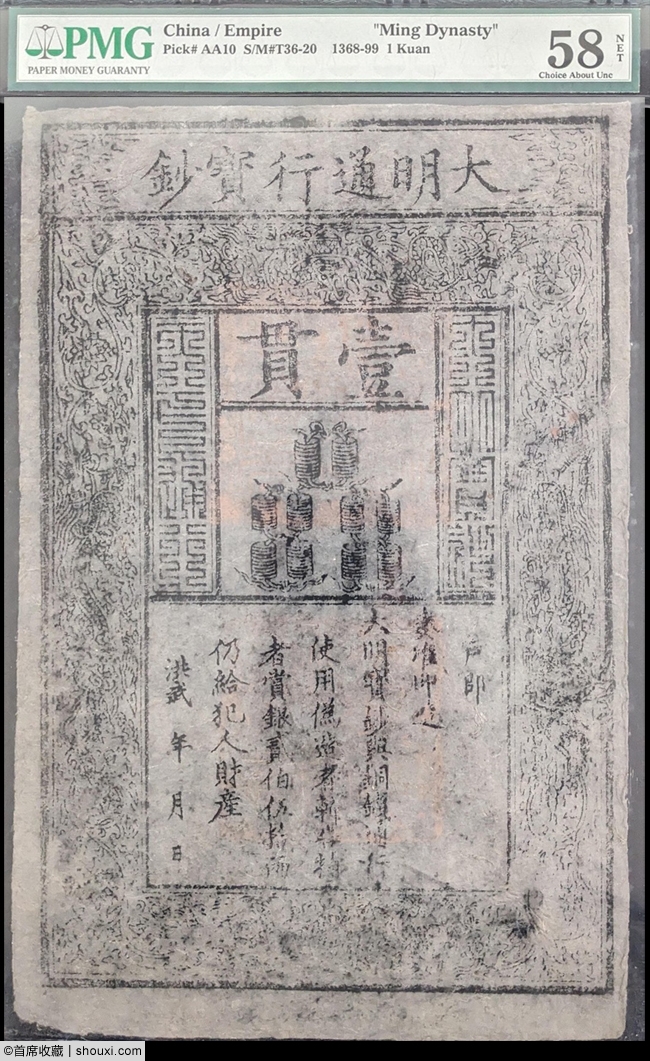 PMG
PAPER MONEY GUARANTY
China / Empire "Ming Dynasty"
Pick# AA10 S/M#T36-20 1368-99 1 Kuan
58 NET
Choice About Unc
大明通行寶鈔
壹貫
戶部
奏准印造
大明寶鈔與銅錢通行
使用僞造者斬告捕
者賞銀貳伯伍拾兩
仍給犯人財產
洪武 年 月 日
©首席收藏 | shouxi.com